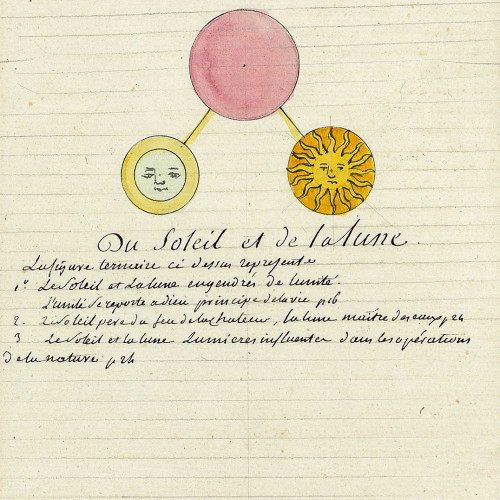 Du Soleil et de la lune.
La figure ternaire ci dessus represente
1° Le Soleil et La lune engendrés de lunité.
L'unité Se reporte a dieu principe de la vie p 16
2. Soleil pere du feu de la chaleur, la lune maitre des eaux p 24
3 Le Soleil et la lune Lumieres influentes dans les opérations
de la nature p 24